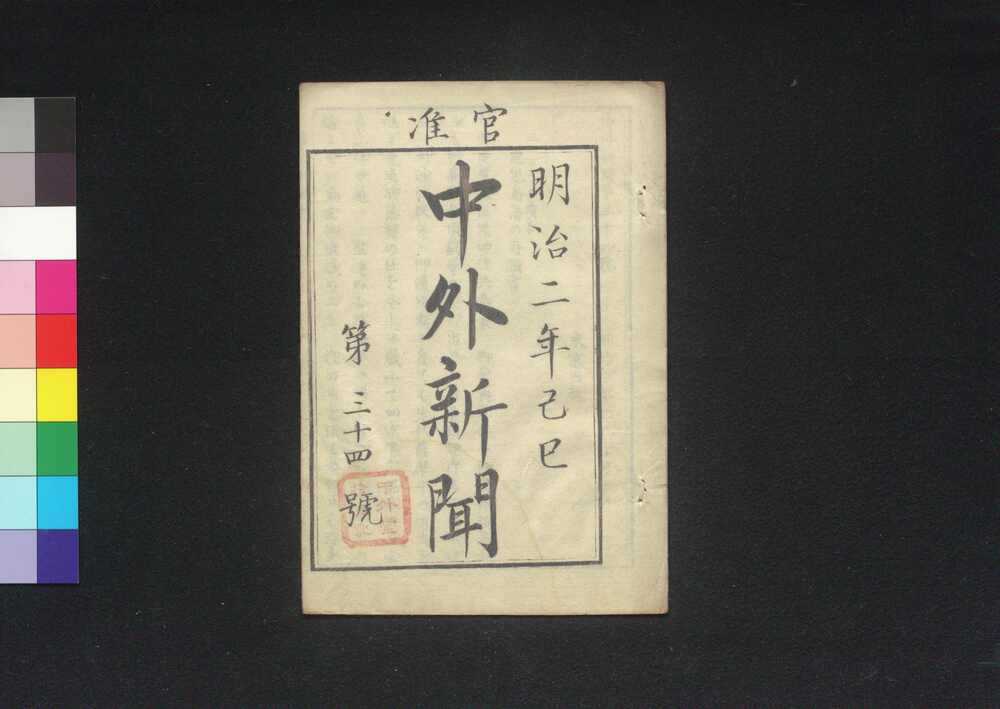 官准
明治二年己巳
中外新聞
第三十四號